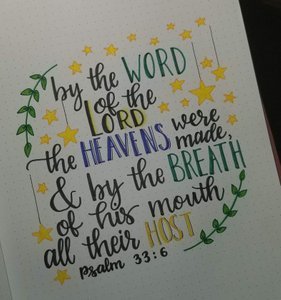 by the WORD
of the
LORD
the HEAVENS were
made,
& by the BREATH
of his mouth
all their HOST
Psalm 33:6